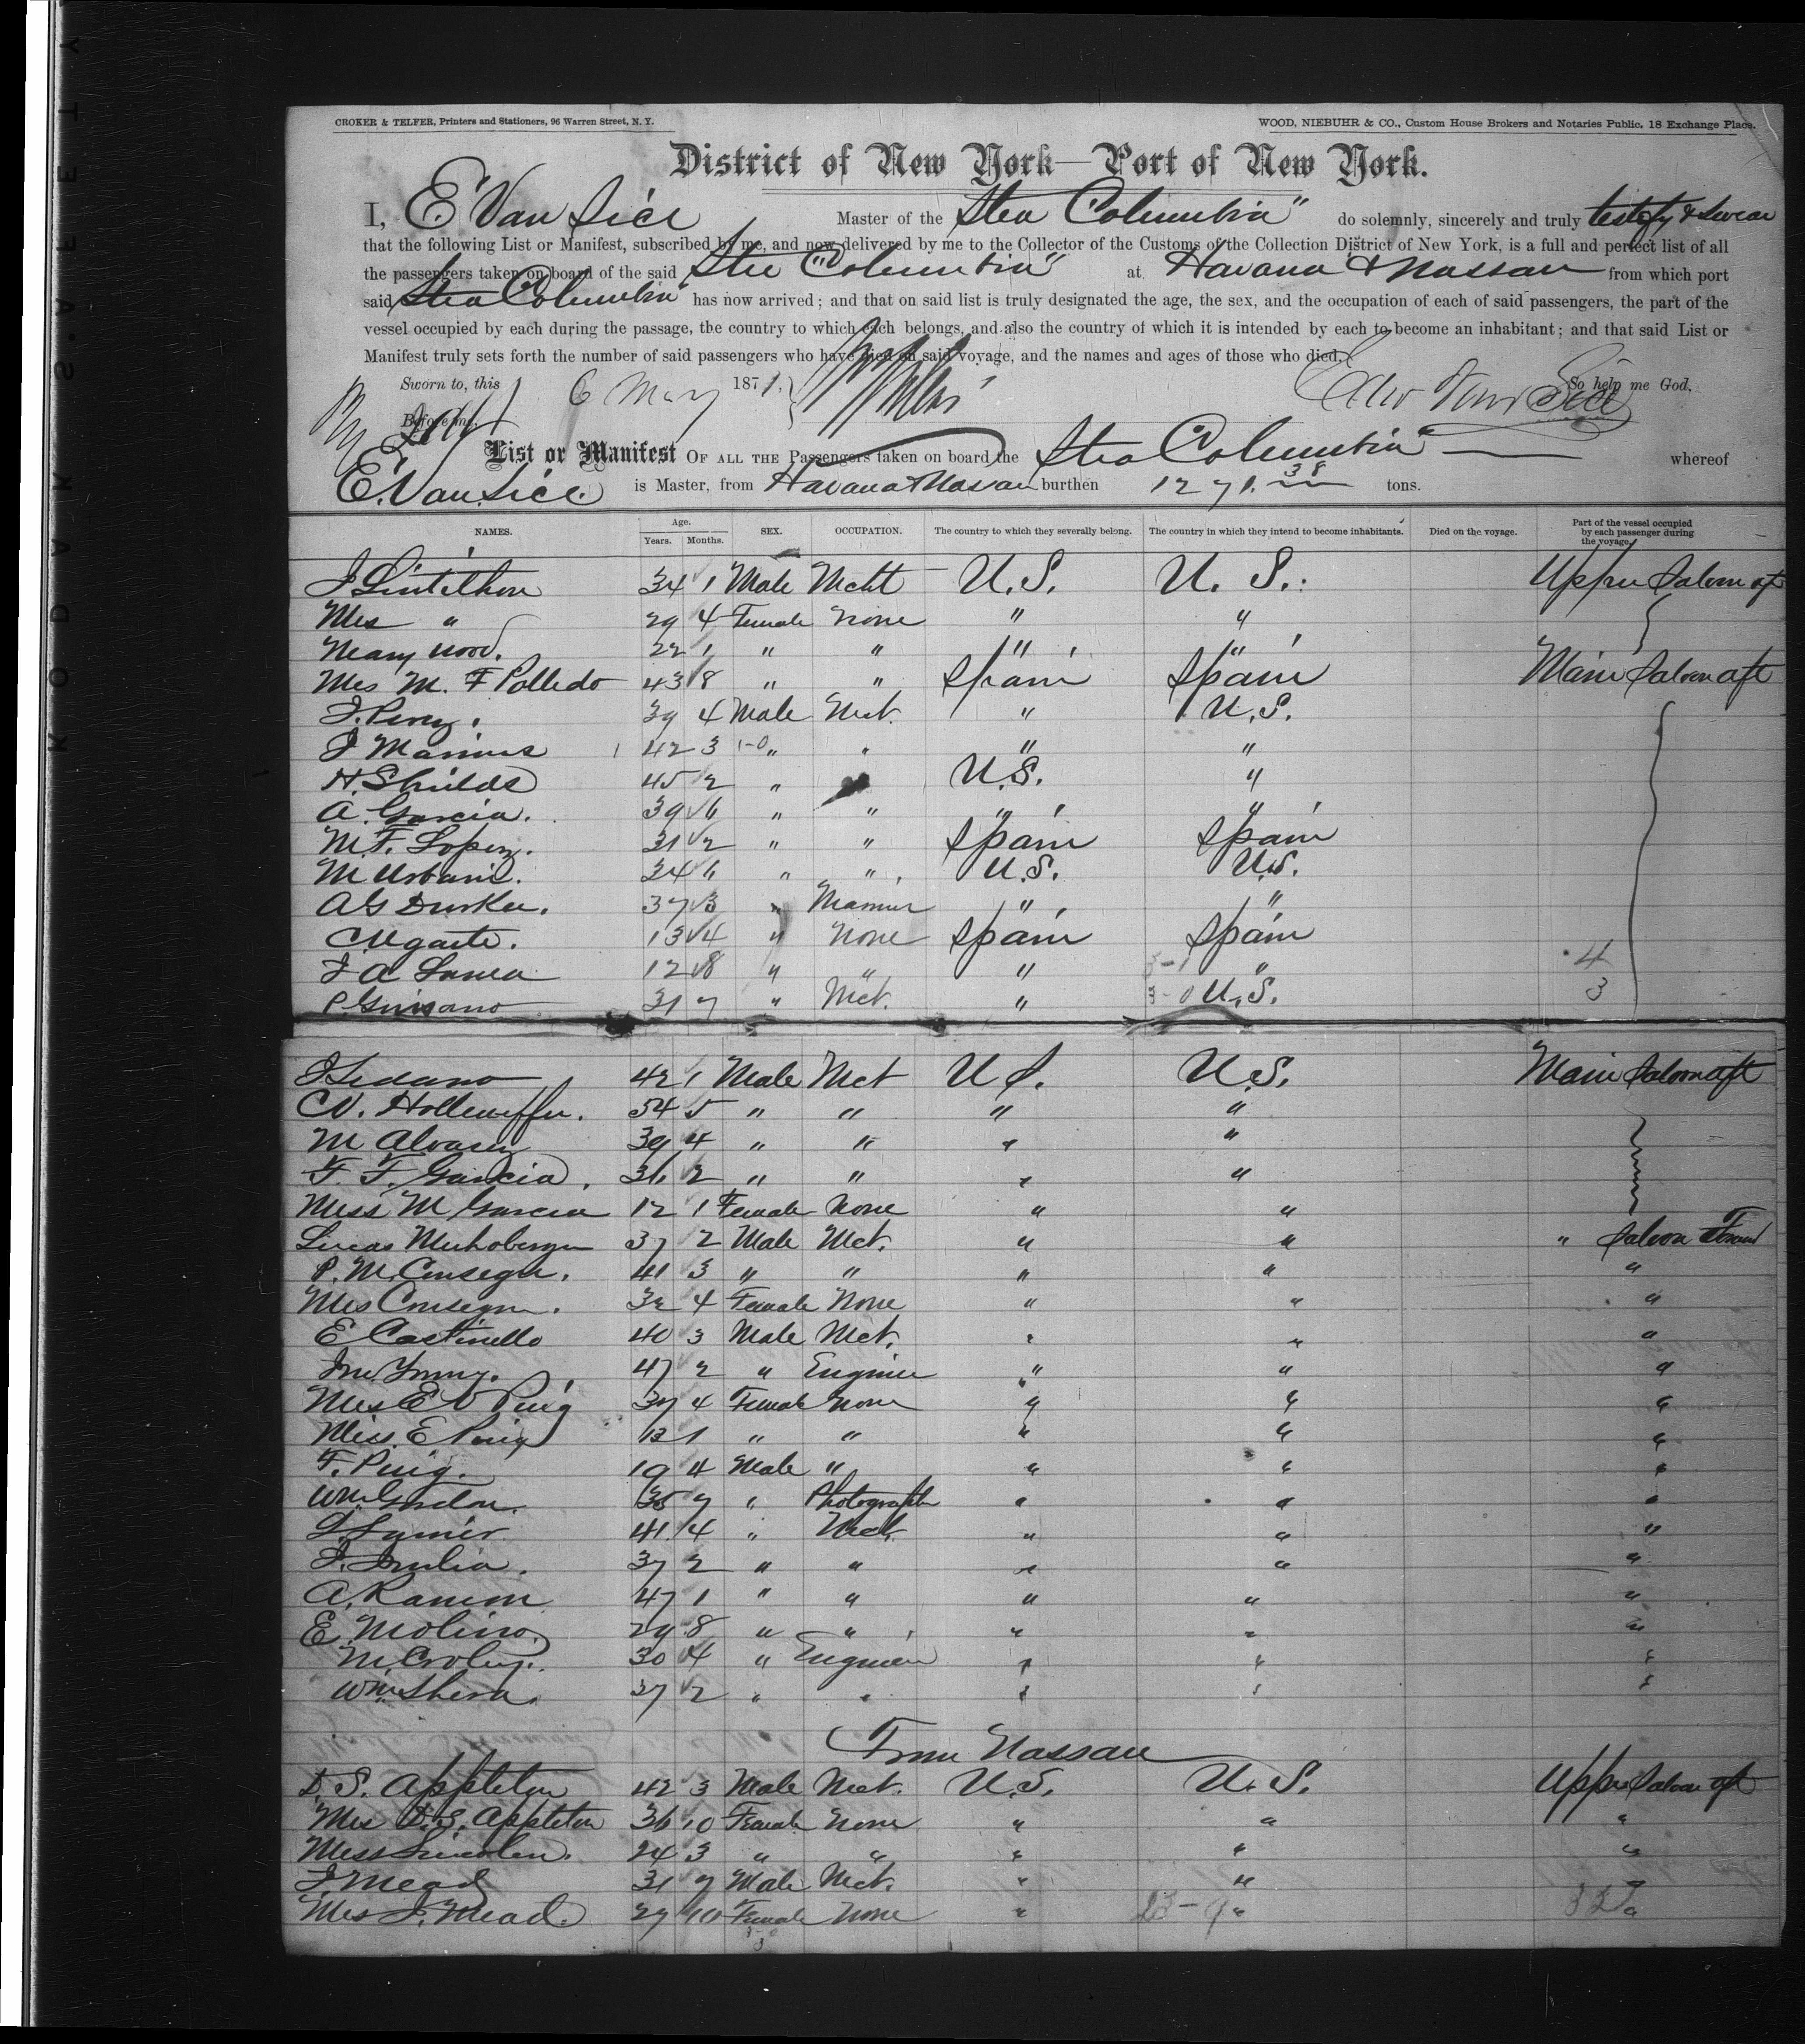 CROKER & TELFER, Printers and Stationers, 96 Warren Street, N. Y.
WOOD, NIEBUHR & CO., Custom House Brokers and Notaries Public, 18 Exchange Place.
District of New York—Port of New York.
I, E Van Sice Master of the Stea Columbia" do solemnly, sincerely and truly testify & swear
that the following List or Manifest, subscribed by me, and now delivered by me to the Collector of the Customs of the Collection District of New York, is a full and perfect list of all
the passengers taken on board of the said Stea "Columbia" at Havana & Nassau from which port
said Stea Columbia" has now arrived; and that on said list is truly designated the age, the sex, and the occupation of each of said passengers, the part of the
vessel occupied by each during the passage, the country to which each belongs, and also the country of which it is intended by each to become an inhabitant; and that said List or
Manifest truly sets forth the number of said passengers who have died on said voyage, and the names and ages of those who died.
Sworn to, this 6 May 1871. So help me God,
Before me, Edw Van Sice
List or Manifest OF ALL THE Passengers taken on board the Stea Columbia" whereof
E. Van Sice is Master, from Havana & Nassau burthen 1271. 38 tons.
NAMES. Age. Years. Months. SEX. OCCUPATION. The country to which they severally belong. The country in which they intend to become inhabitants. Died on the voyage. Part of the vessel occupied by each passenger during the voyage.
34 1 Male Mcht U.S. U. S. Upper Saloon aft
Mrs " 29 4 Female None " "
Mary Wood. 22 1 " " " "
Mrs M. F Polledo 43 8 " " Spain Spain Main Saloon aft
J. Perez. 39 4 Male Mct. " U.S.
J 42 3 " " " "
H. Shields 45 2 " U.S. "
A. Garcia. 39 6 " " " "
M. F. Lopez. 31 2 " " Spain Spain
M 34 6 " " U.S. U.S.
A G Durkee. 37 3 " Mariner " "
C. Ugarte. 13 4 " None Spain Spain
J A 12 8 " " " " 4
P. 31 7 " Mct. " U.S. 3
J Sedano 42 1 Male Mct U S. U.S. Main Saloon aft
C V. 54 5 " " " "
M Alvarez 39 4 " " " "
F. F. Garcia. 36 2 " " " "
Miss M Garcia 12 1 Female None " "
Lucas 37 2 Male Mct. " " " Saloon Forwd
P. M. Consegra. 41 3 " " " " "
Mrs Consegra. 32 4 Female None " " "
E Castinello 40 3 Male Mct. " " "
Jno Young. 47 2 " Engineer " " "
Mrs E V Puig 37 4 Female None " " "
Miss E Puig 12 1 " " " " "
F. Puig. 19 4 Male " " " "
Wm Gordon. 35 7 " Photographer " " "
41 4 " Mct " " "
J. Julia. 37 2 " " " " "
A. Ramon 47 1 " " " " "
E Molino. 29 8 " " " " "
M. Croley. 30 4 " Engineer " " "
Wm Shera. 37 2 " " " " "
From Nassau
D. S. Appleton 42 3 Male Mct. U.S. U. S. Upper Saloon aft
Mrs D. S. Appleton 36 10 Female None " " "
Miss Lincoln. 24 3 " " " " "
J. Mead 31 7 Male Mct. " " "
Mrs J. Mead. 27 10 Female None " " "